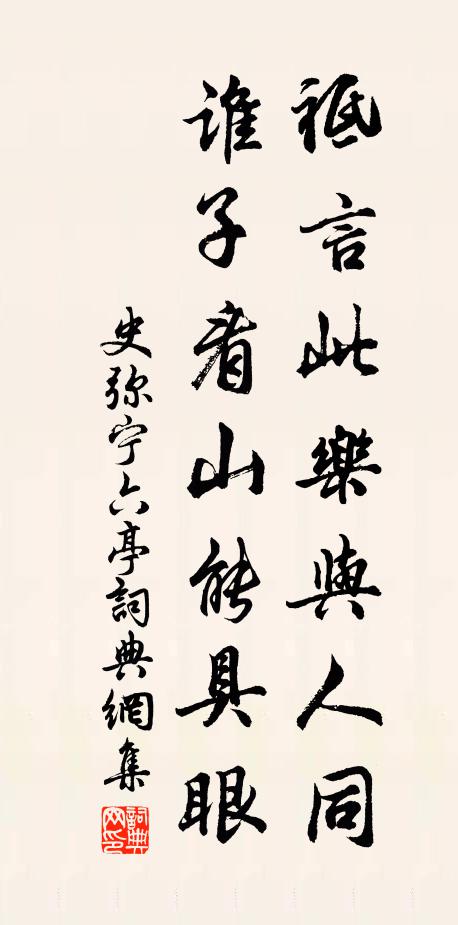 祗言此樂與人同
誰子看山能具眼
史弥宁六亭詞典網集
詞典網印